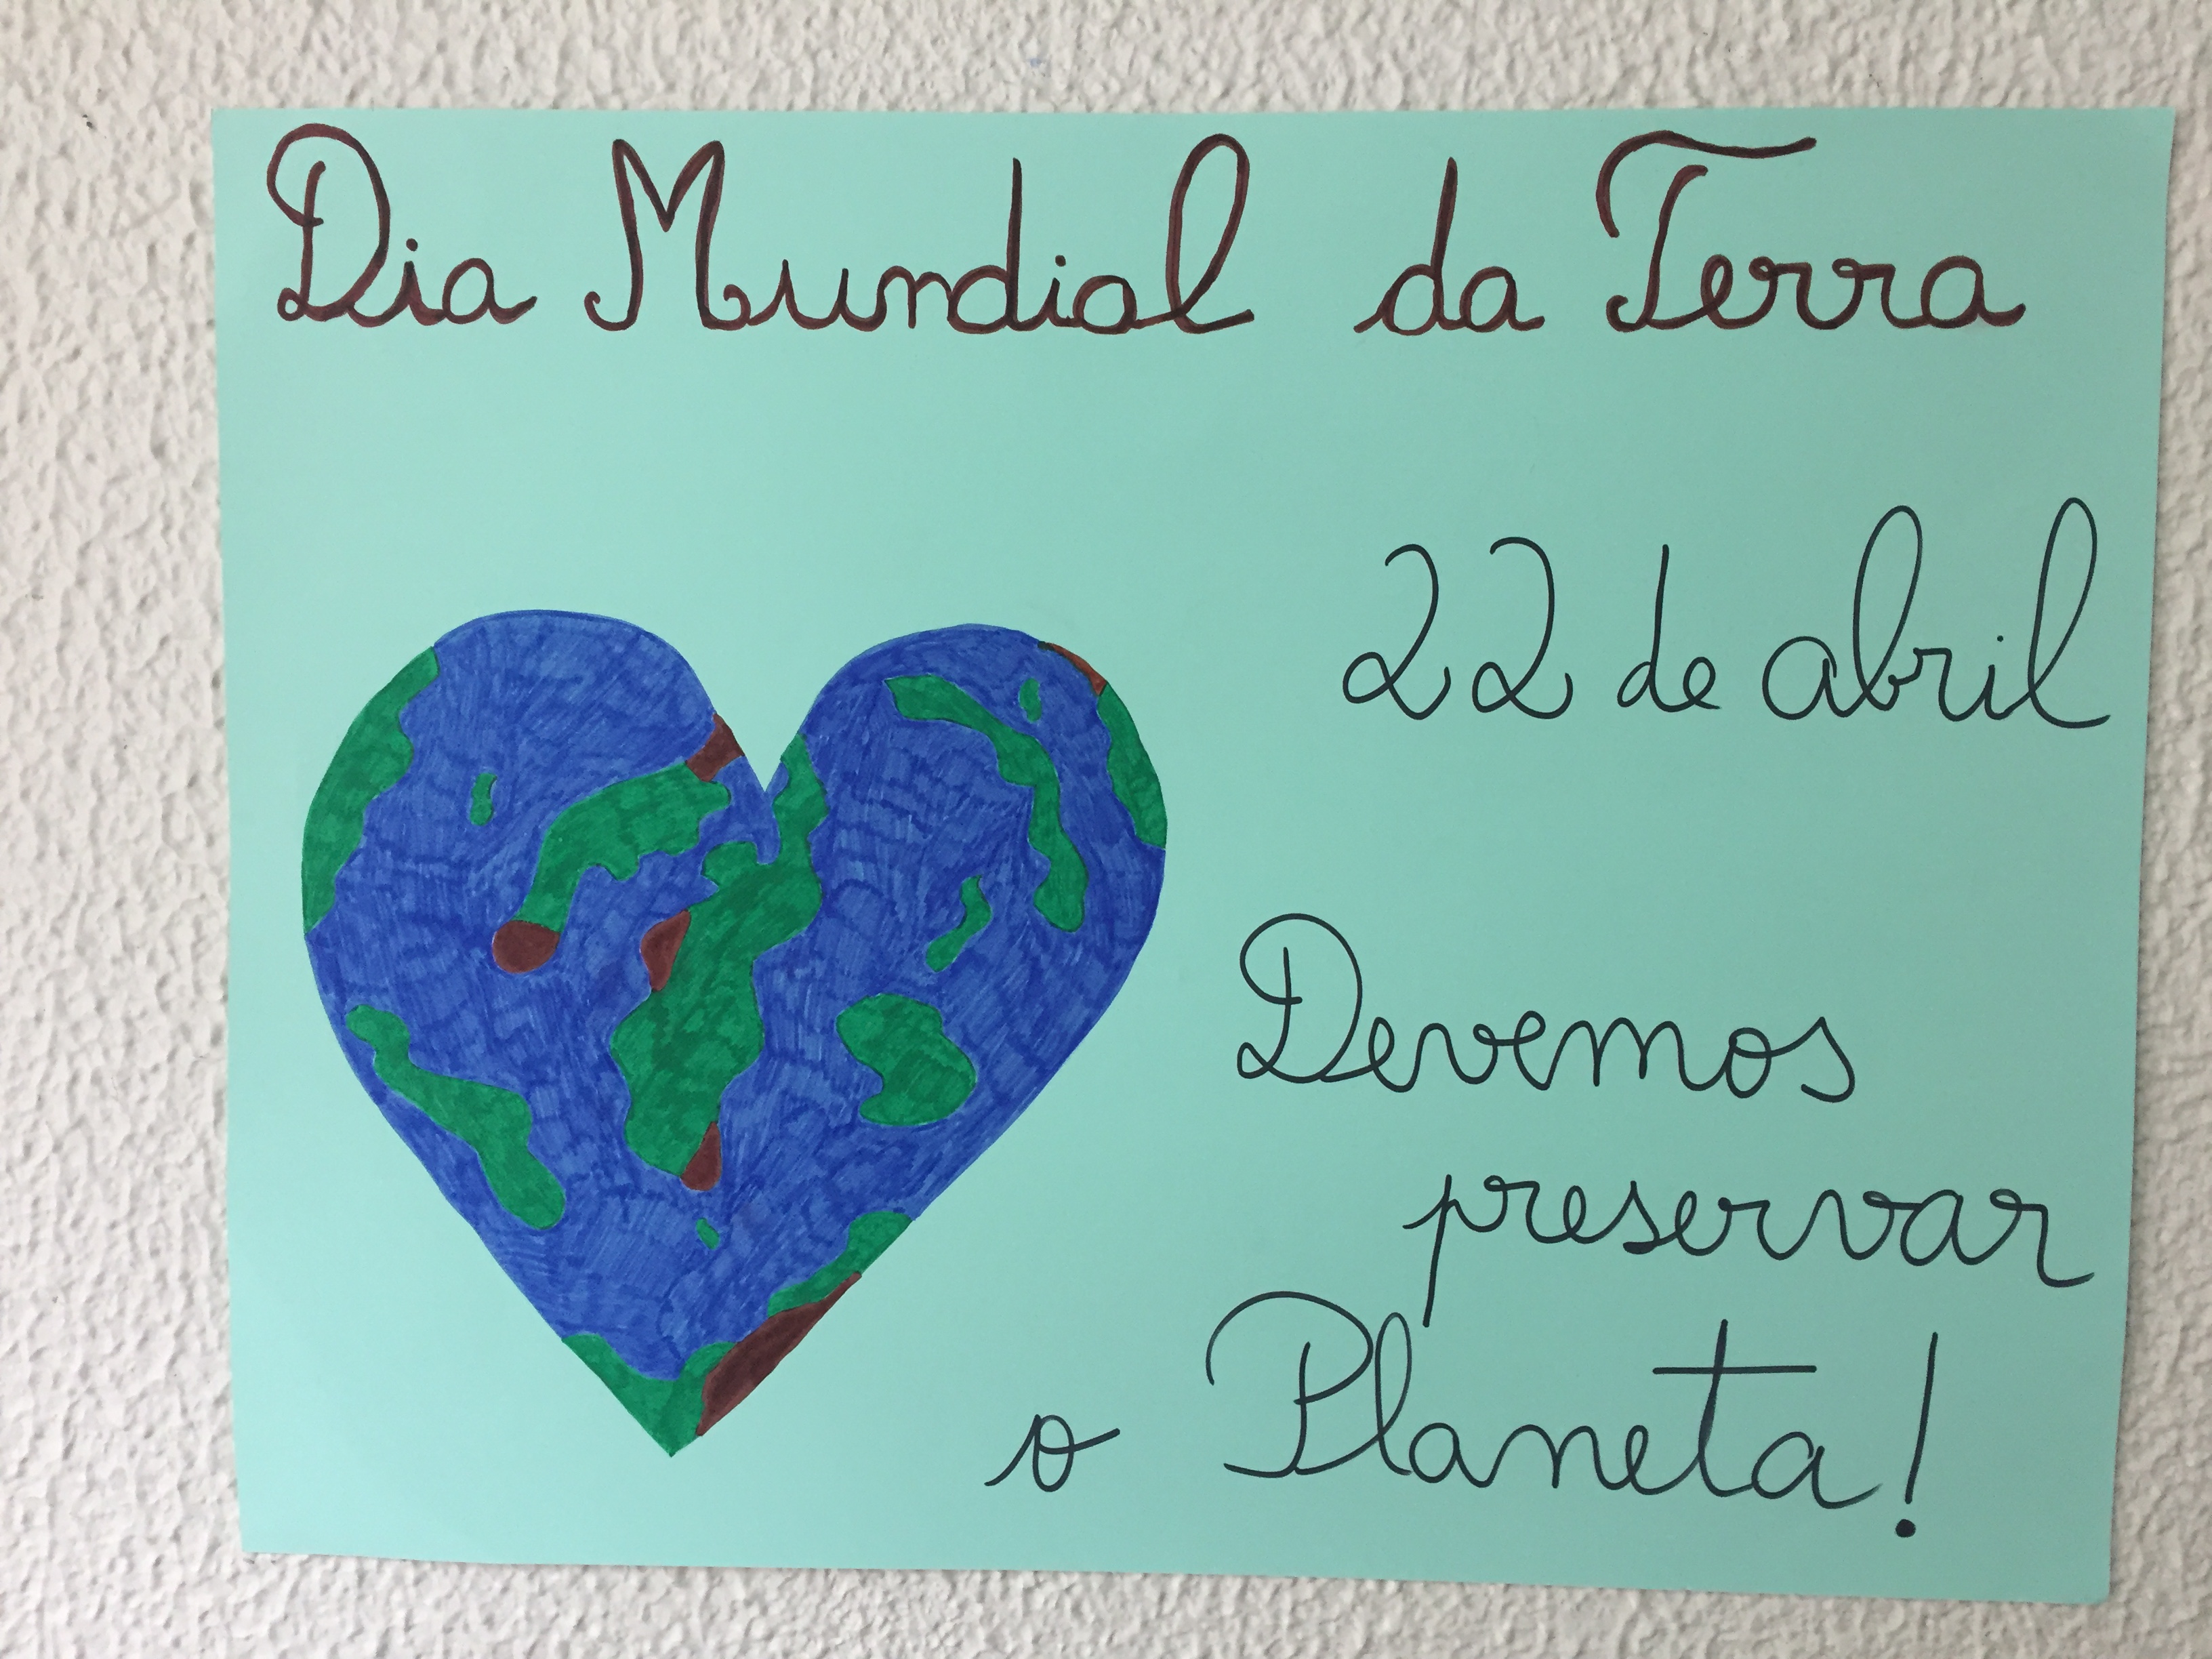 Dia Mundial da Terra
22 de abril
Devemos
preservar
o Planeta!